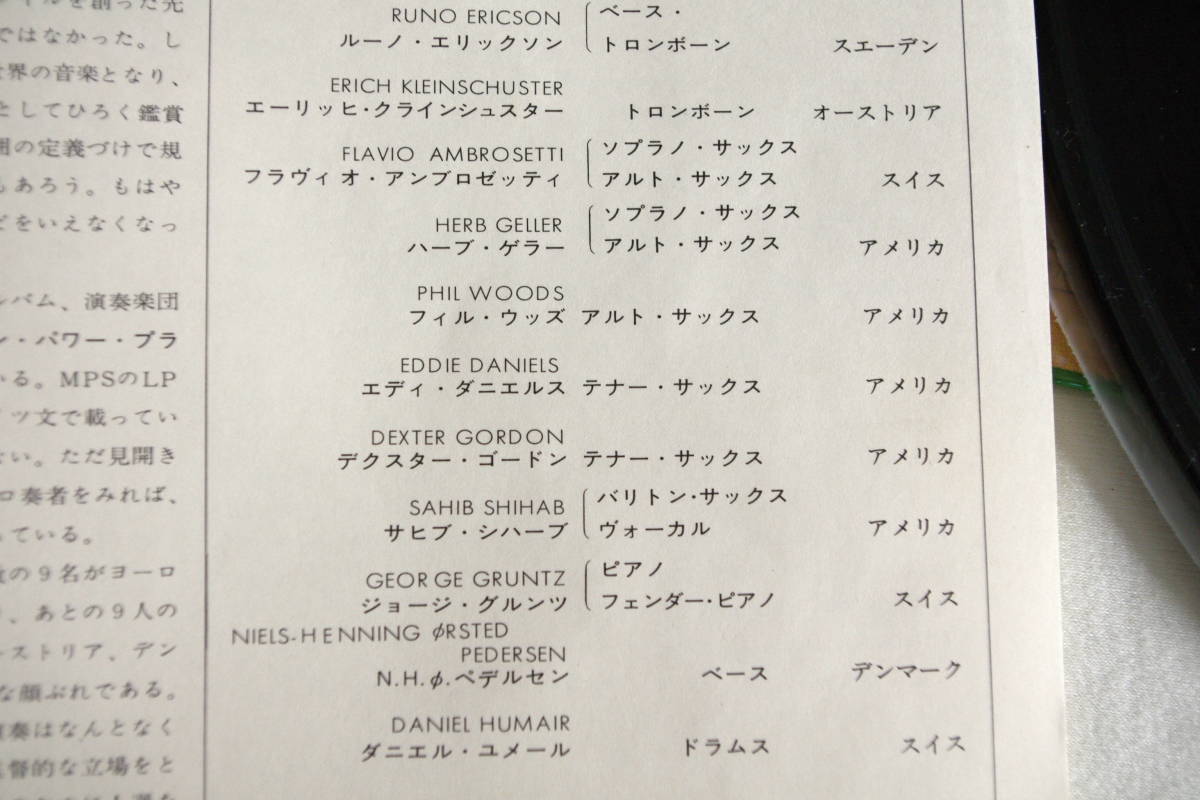 イルを創った先
ではなかった。し
世界の音楽となり、
としてひろく鑑賞
囲の定義づけで規
もあろう。もはや
どをいえなくなっ
ルバム、演奏楽団
ン・パワー・ブラ
いる。MPSのLP
イツ文で載ってい
ない。ただ見開き
ロ奏者をみれば、
っている。
数の9名がヨーロ
り、あとの9人の
ーストリア、デン
な顔ぶれである。
演奏はなんとなく
監督的な立場をと
RUNO ERICSON
ルーノ・エリックソン
ベース・
トロンボーン
スエーデン
ERICH KLEINSCHUSTER
エーリッヒ・クラインシュスター
トロンボーン
オーストリア
FLAVIO AMBROSETTI
フラヴィオ・アンブロゼッティ
ソプラノ・サックス
アルト・サックス
スイス
HERB GELLER
ハーブ・ゲラー
ソプラノ・サックス
アルト・サックス
アメリカ
PHIL WOODS
フィル・ウッズ
アルト・サックス
アメリカ
EDDIE DANIELS
エディ・ダニエルス
テナー・サックス
アメリカ
DEXTER GORDON
デクスター・ゴードン
テナー・サックス
アメリカ
SAHIB SHIHAB
サヒブ・シハーブ
バリトン・サックス
ヴォーカル
アメリカ
GEORGE GRUNTZ
ジョージ・グルンツ
ピアノ
フェンダー・ピアノ
スイス
NIELS-HENNING ØRSTED
PEDERSEN
N.H.φ.ペデルセン
ベース
デンマーク
DANIEL HUMAIR
ダニエル・ユメール
ドラムス
スイス